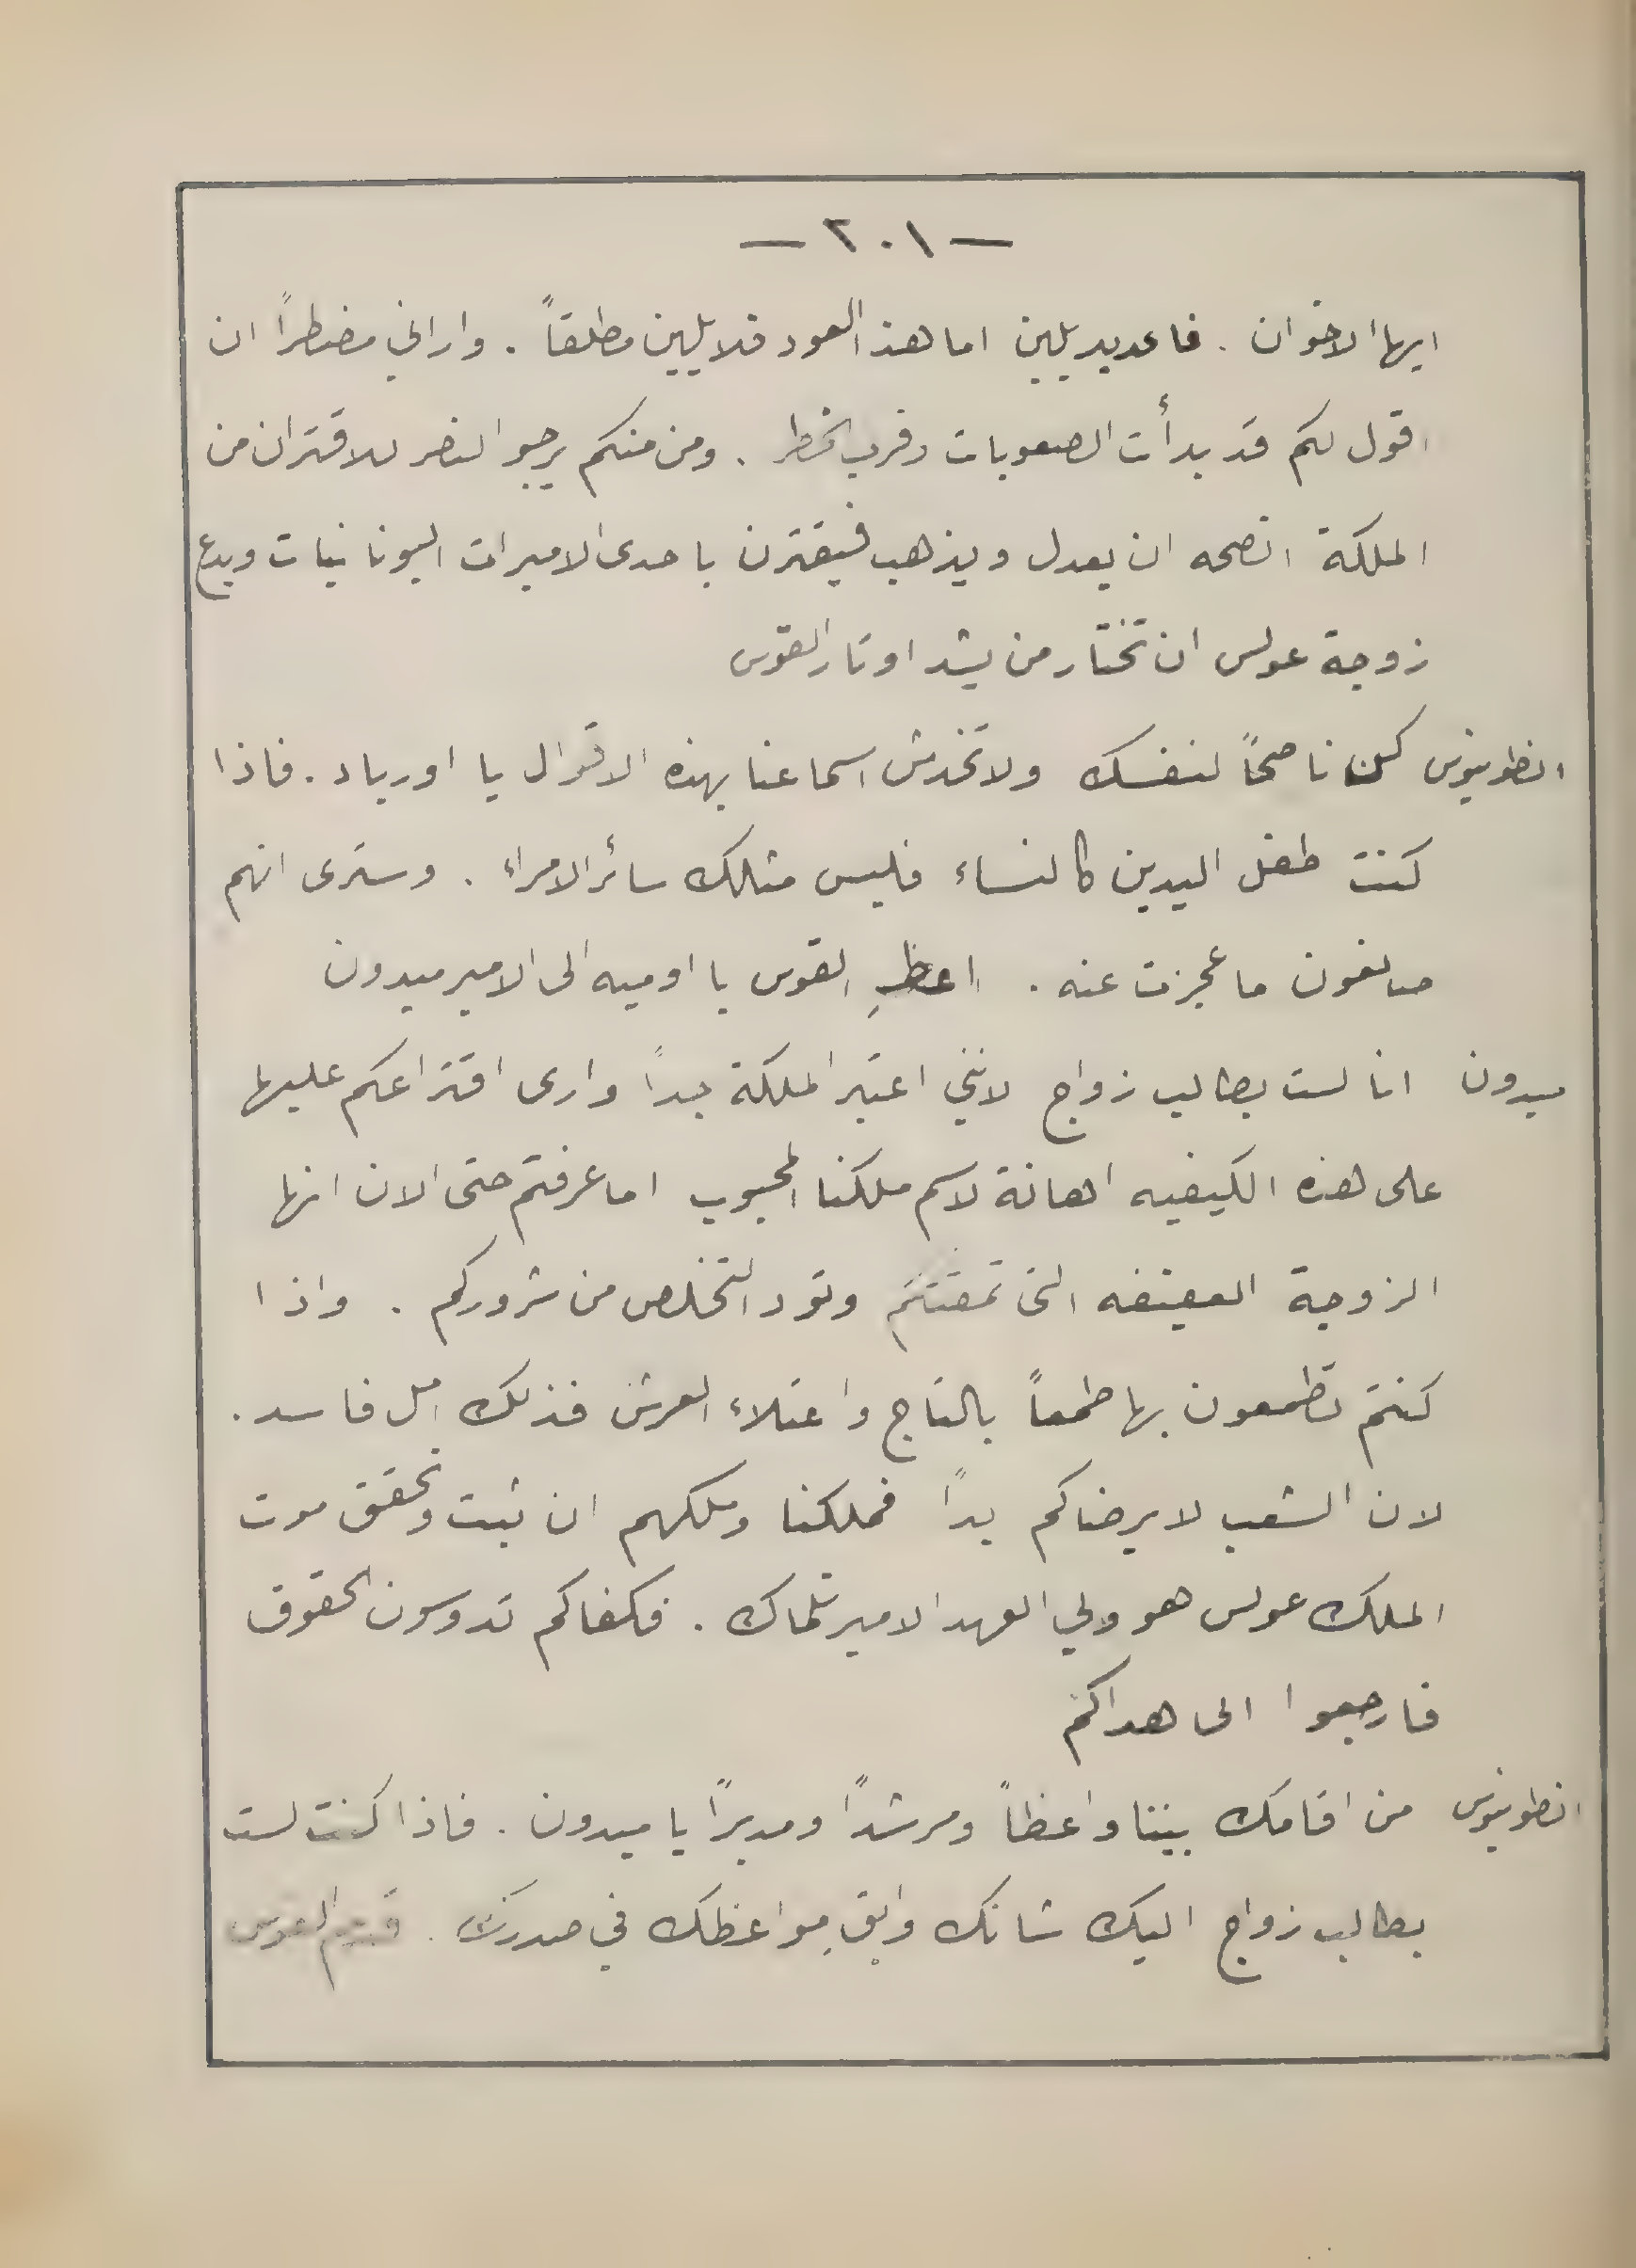 — ٢٠١ —
ايها الاخوان . فاعديد يلين اما هذا العود فلا يلين مطلقاً . واراني مضطراً ان
اقول لكم قد بدأت الصعوبات وقرب الخطر . ومن منكم يرجو النصر للاقتران من
الملكة انصحه ان يعدل ويذهب فيقترن باحدى الاميرات اليونانيات ويدع
زوجة عولس ان تختار من يشد اوتار القوس
انطونيوس كن ناصحاً لنفسك ولا تخدش اسماعنا بهذه الاقوال يا اورياد . فاذا
كنت طفل اليدين كالنساء فليس مثلك سائر الامراء . وسترى انهم
صانعون ما عجزت عنه . اعطِ القوس يا اوميه الى الامير ميدون
ميدون انا لست بطالب زواج لانني اعتبر الملكة جداً وارى اقتراعكم عليها
على هذه الكيفيه اهانة لاسم ملكنا المحبوب اما عرفتم حتى الان انها
الزوجة العفيفه التي تمقتكم وتود التخلص من شروركم . واذا
كنتم تطمعون بها طمعاً بالتاج واعتلاء العرش فذلك امل فاسد .
لان الشعب لا يرضاكم بداً فملكنا وملكهم ان ثبت وتحقق موت
الملك عولس هو ولي العهد الامير تلماك . فكفاكم تدوسون الحقوق
فارجعوا الى هداكم
انطونيوس من اقامك بيننا واعظاً ومرشداً ومدبراً يا ميدون . فاذا كنت لست
بطالب زواج اليك شانك وابقِ مواعظك في صدرك . القوس